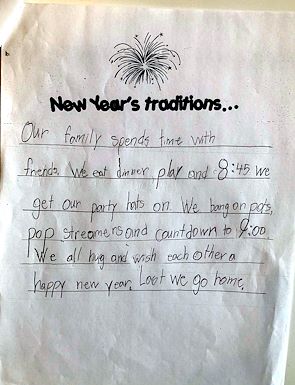 New Year's traditions...
Our family spends time with
friends. We eat dinner play and 8:45 we
get our party hats on. We bang on pots,
pop streamers and countdown to 9:00.
We all hug and wish each other a
happy new year. Last we go home.